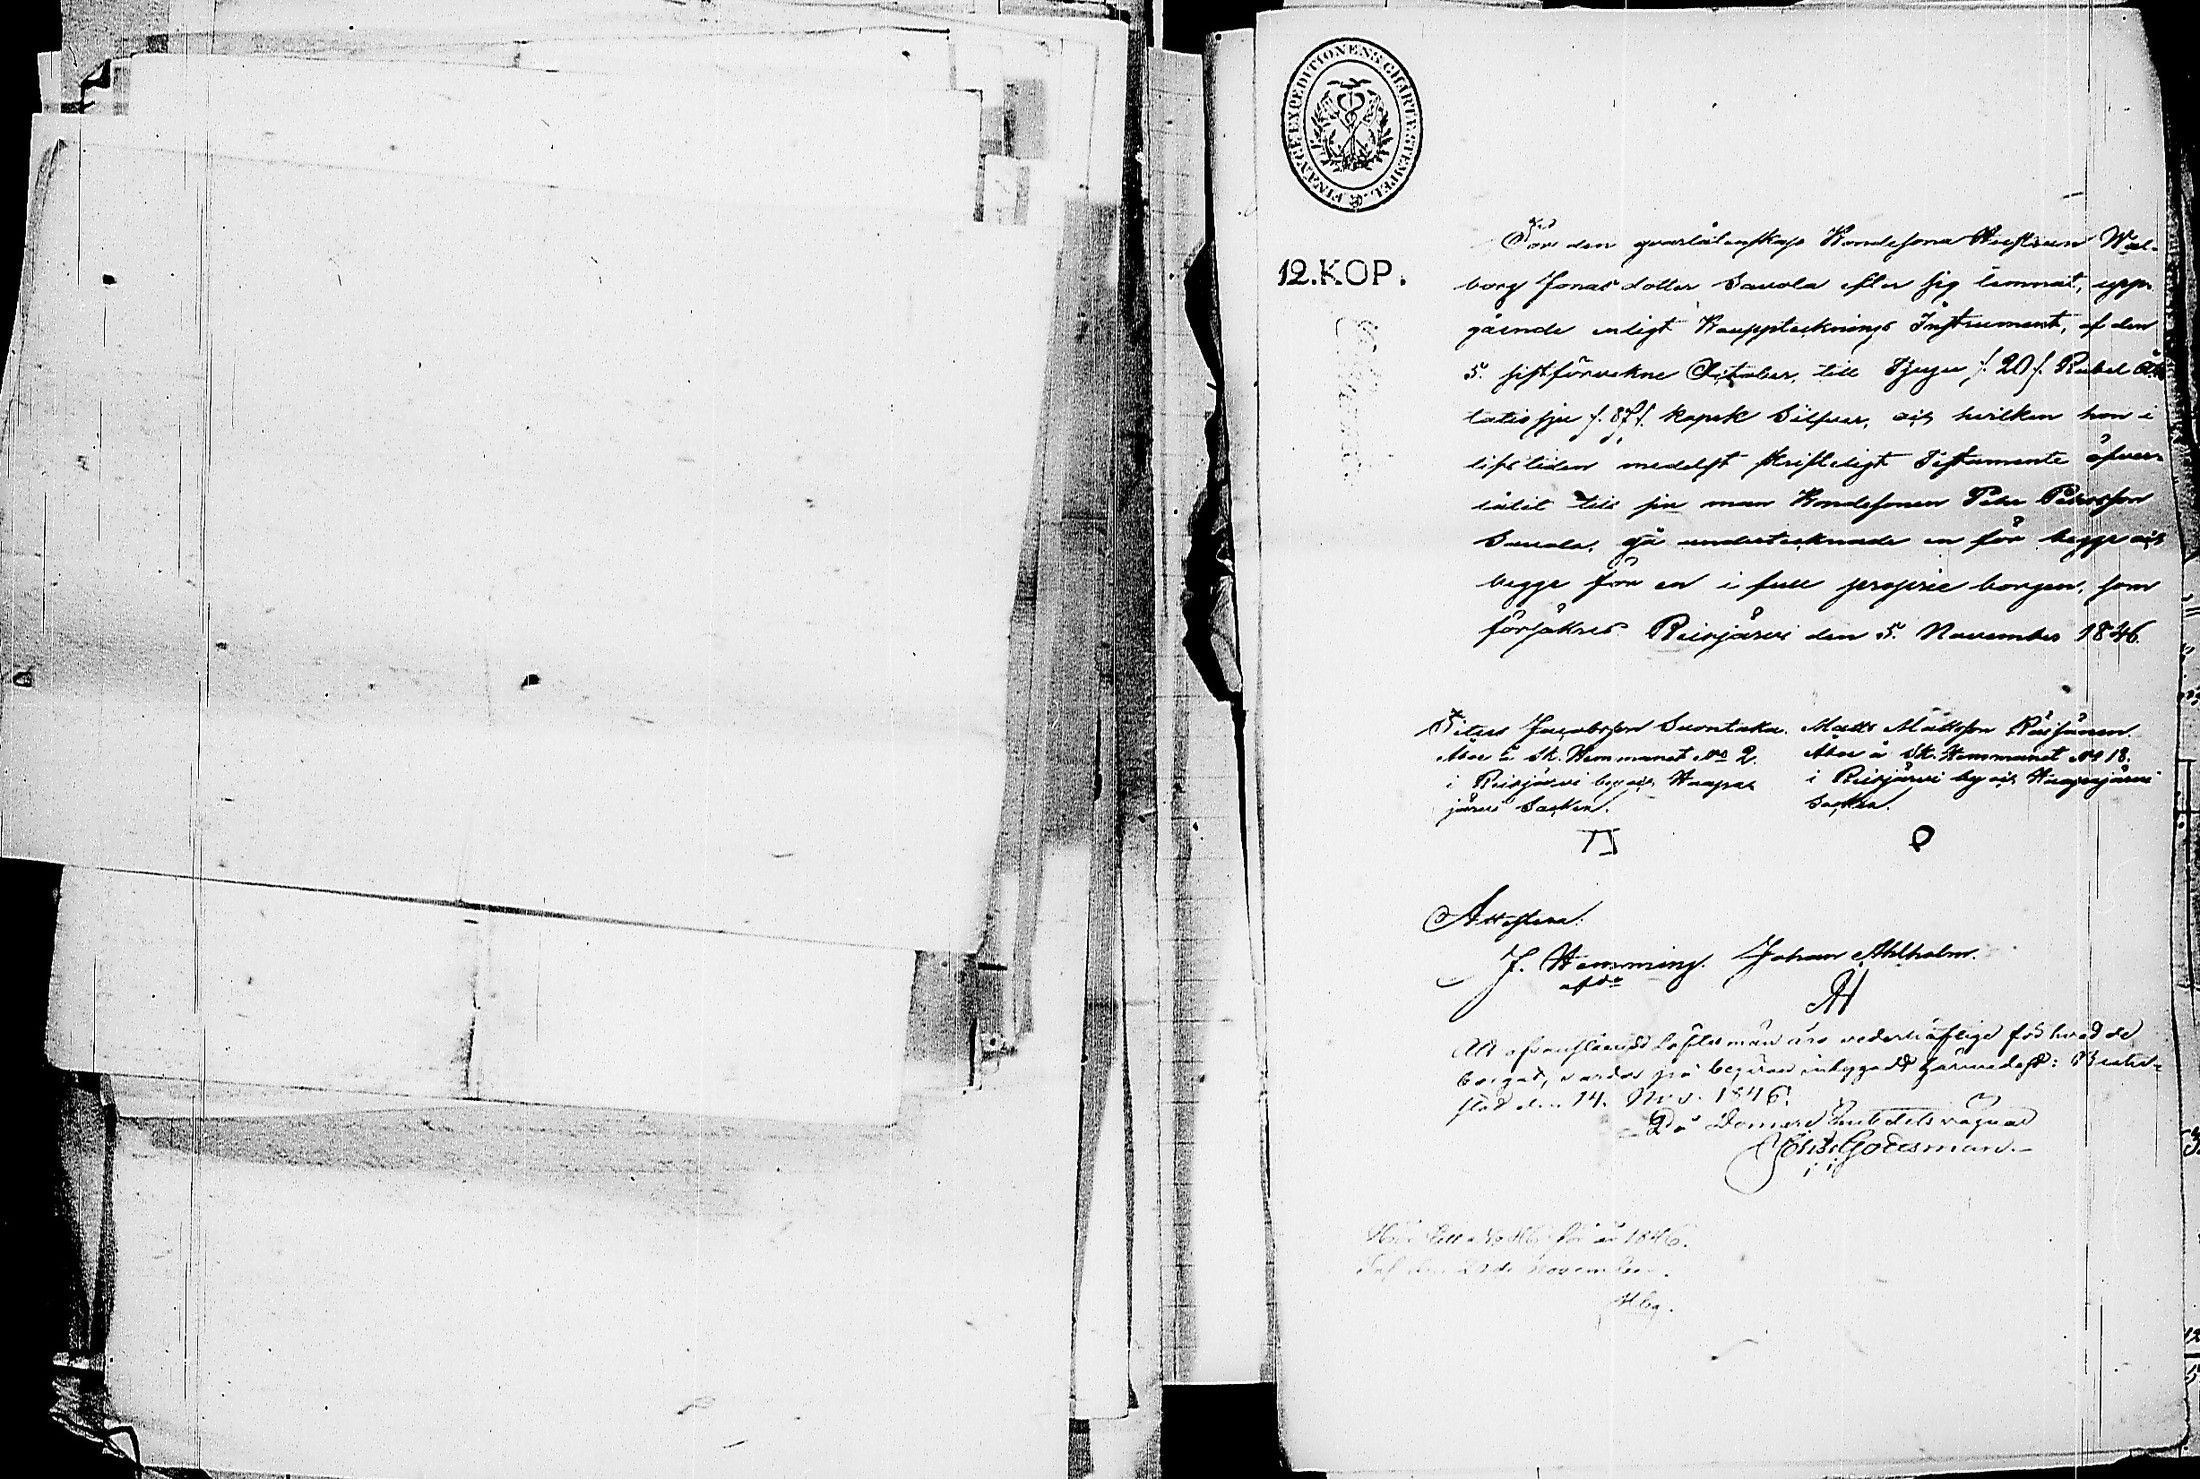 FINANCE EXPEDITIONENS CHARTÆ STEMPEL
12. KOP.
För den qvarlåtenskap Bondesona Hustrun Wal-
borg Jonas dotter Savola efter sig lemnat, upp-
gående enligt Bouppteknings Instrument, af den
5. sistförvekne October, till Tjugu /. 20 /. Rubel
tatiosju /. 87 /. kopek Silfver, och hvilken hon i
lifstiden medelst skriftligt Testamente öfver-
låtit till sin man Bondesonen Peter Petersson
Savola, gå undertecknade en för begge och
begge för en i full proprie borgen, som
försäkres Reisjärvi den 5. November 1846.
Peter Jacobsson Suontaka.
Åboe å Sk. Hemmanet No 2.
i Reisjärvi by och Haapa-
järvi Socken.
Matts Mattsson
Åboe å Sk. Hemmanet No 18.
i Reisjärvi by och Haapajärvi
Socken.
Attestera:
J. Hemming. Johan Ahlholm.
AH
Att ofvanstående Löftesmän äro vederhäftige för hvad de
borgat, varder på begäran intygadt härmedelst:
stad den 14. Nov. 1846.
På Domare Embetets vägnar
November